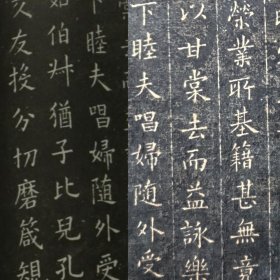 榮業所基籍甚無竟
以甘棠去而益詠樂
下睦夫唱婦随外受
下睦夫唱婦随外受
姑伯叔猶子比兒孔
交友投分切磨箴規